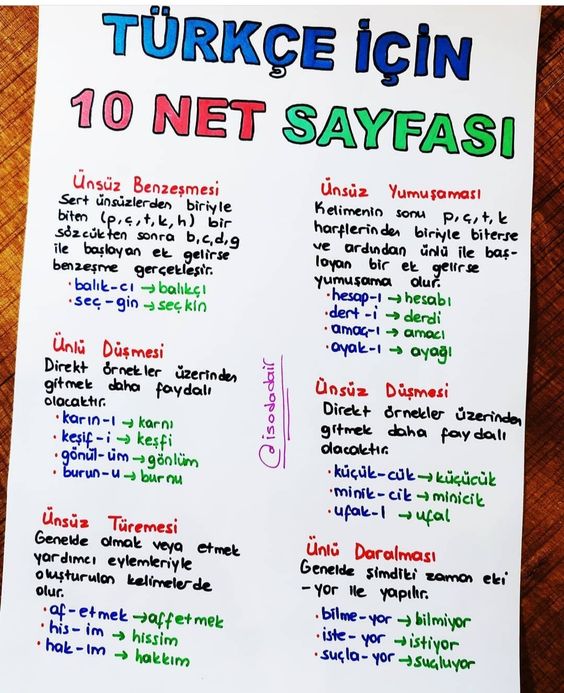 TÜRKÇE İÇİN
10 NET SAYFASI
Ünsüz Benzeşmesi
Sert ünsüzlerden biriyle
biten (p, ç, t, k, h) bir
sözcükten sonra b, c, d, g
ile başlayan ek gelirse
benzeşme gerçekleşir.
• balık-cı → balıkçı
• seç-gin → seçkin
Ünlü Düşmesi
Direkt örnekler üzerinden
gitmek daha faydalı
olacaktır.
• karın-ı → karnı
• keşif-i → keşfi
• gönül-üm → gönlüm
• burun-u → burnu
Ünsüz Türemesi
Genelde olmak veya etmek
yardımcı eylemleriyle
oluşturulan kelimelerde
olur.
• af-etmek → affetmek
• his-im → hissim
• hak-ım → hakkım
@isodadair
Ünsüz Yumuşaması
Kelimenin sonu p, ç, t, k
harflerinden biriyle biterse
ve ardından ünlü ile baş-
layan bir ek gelirse
yumuşama olur.
• hesap-ı → hesabı
• dert-i → derdi
• amaç-ı → amacı
• ayak-ı → ayağı
Ünsüz Düşmesi
Direkt örnekler üzerinden
gitmek daha faydalı
olacaktır.
• küçük-cük → küçücük
• minik-cik → minicik
• ufak-l → ufal
Ünlü Daralması
Genelde şimdiki zaman eki
-yor ile yapılır.
• bilme-yor → bilmiyor
• iste-yor → istiyor
• suçla-yor → suçluyor